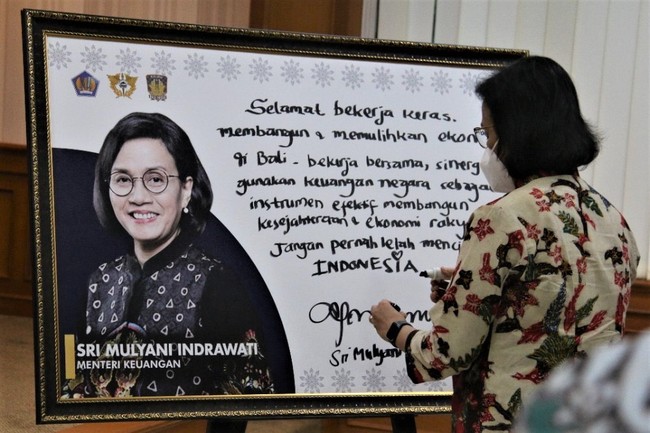 Selamat bekerja keras.
membangun & memulihkan
di Bali - bekerja bersama,
gunakan keuangan negara sebagai
instrumen efektif membangun
kesejahteraan & ekonomi
Jangan pernah lelah
INDONESIA
Sri Mulyani
SRI MULYANI INDRAWATI
MENTERI KEUANGAN